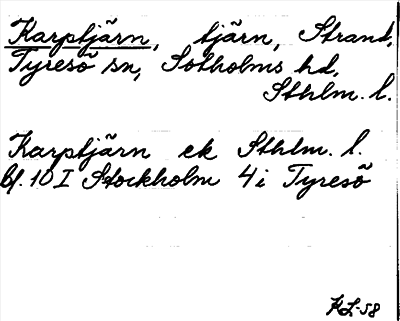 Karptjärn, tjärn, Strand,
Tyresö sn, Sotholms hd,
Sthlm. l.
Karptjärn ek Sthlm. l.
bl. 10 I Stockholm 4 i Tyresö
KL-58